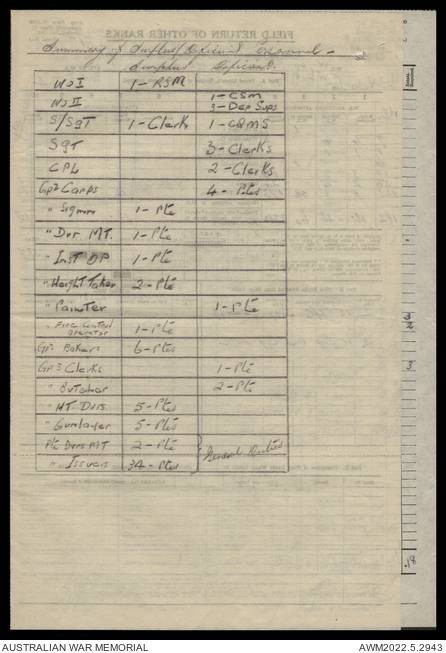 FIELD RETURN OF OTHER RANKS
Summary of Surplus/Deficient Personnel -
Surplus Deficient.
WO I 1 - RSM
WO II 1 - CSM
3 - Dep Sups
S/Sgt 1 - Clerk 1 - CQMS
Sgt 3 - Clerks
CPL 2 - Clerks
Gp2 Carps 4 - Ptes
" Sigmn 1 - Pte
" Dvr. MT. 1 - Pte
" Inst OP 1 - Pte
" Height Taker 2 - Ptes
" Painter 1 - Pte
" Fire Control Operator 1 - Pte
Gp: Bakers 6 - Ptes
Gp3 Clerks 1 - Pte
" Butcher 2 - Pte
" MT. Dvrs. 5 - Ptes
" Gunlayer 5 - Ptes
Pte Dvrs MT 2 - Ptes
General Duties
" Issuers 34 - Ptes
3
2
3
.18
AUSTRALIAN WAR MEMORIAL AWM2022.5.2943